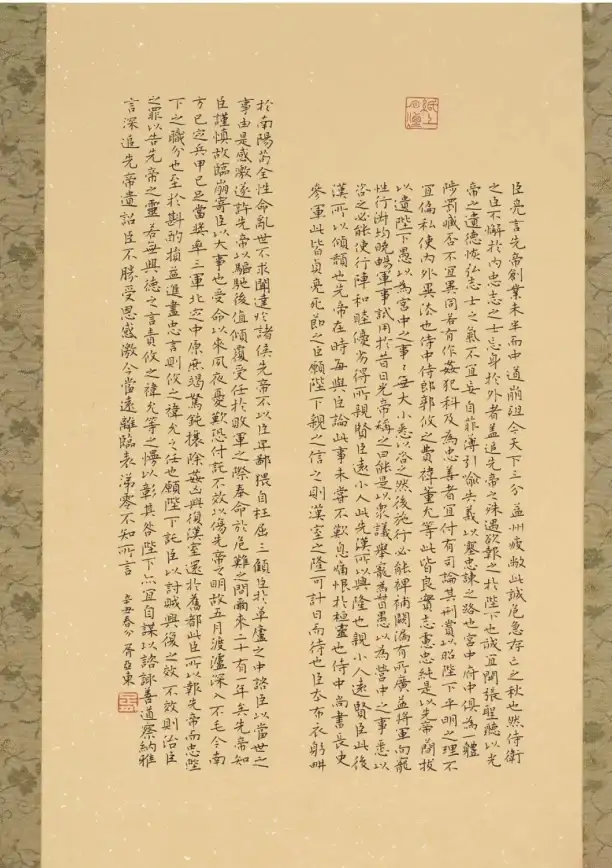 臣亮言先帝創業未半而中道崩殂今天下三分益州疲敝此誠危急存亡之秋也然侍衛
之臣不懈於內忠志之士忘身於外者蓋追先帝之殊遇欲報之於陛下也誠宜開張聖聽以光
帝之遺德恢弘志士之氣不宜妄自菲薄引喻失義以塞忠諫之路也宮中府中俱為一體
陟罰臧否不宜異同若有作姦犯科及為忠善者宜付有司論其刑賞以昭陛下平明之理不
宜偏私使內外異法也侍中侍郎郭攸之費禕董允等此皆良實志慮忠純是以先帝簡拔
以遺陛下愚以為宮中之事事無大小悉以咨之然後施行必能裨補闕漏有所廣益將軍向寵
性行淑均曉暢軍事試用於昔日先帝稱之曰能是以眾議舉寵為督愚以為營中之事悉以
咨之必能使行陣和睦優劣得所親賢臣遠小人此先漢所以興隆也親小人遠賢臣此後
漢所以傾頹也先帝在時每與臣論此事未嘗不歎息痛恨於桓靈也侍中尚書長史
參軍此皆貞亮死節之臣願陛下親之信之則漢室之隆可計日而待也臣本布衣躬耕
於南陽苟全性命亂世不求聞達於諸侯先帝不以臣卑鄙猥自枉屈三顧臣於草廬之中諮臣以當世之
事由是感激遂許先帝以驅馳後值傾覆受任於敗軍之際奉命於危難之間爾來二十有一年矣先帝知
臣謹慎故臨崩寄臣以大事也受命以來夙夜憂歎恐付託不效以傷先帝之明故五月渡瀘深入不毛今南
方已定兵甲已足當獎率三軍北定中原庶竭駑鈍攘除姦凶興復漢室還於舊都此臣所以報先帝而忠陛
下之職分也至於斟酌損益進盡忠言則攸之禕允之任也願陛下託臣以討賊興復之效不效則治臣
之罪以告先帝之靈若無興德之言責攸之禕允等之慢以彰其咎陛下亦宜自謀以諮諏善道察納雅
言深追先帝遺詔臣不勝受恩感激今當遠離臨表涕零不知所言 辛丑春分 胥亞東